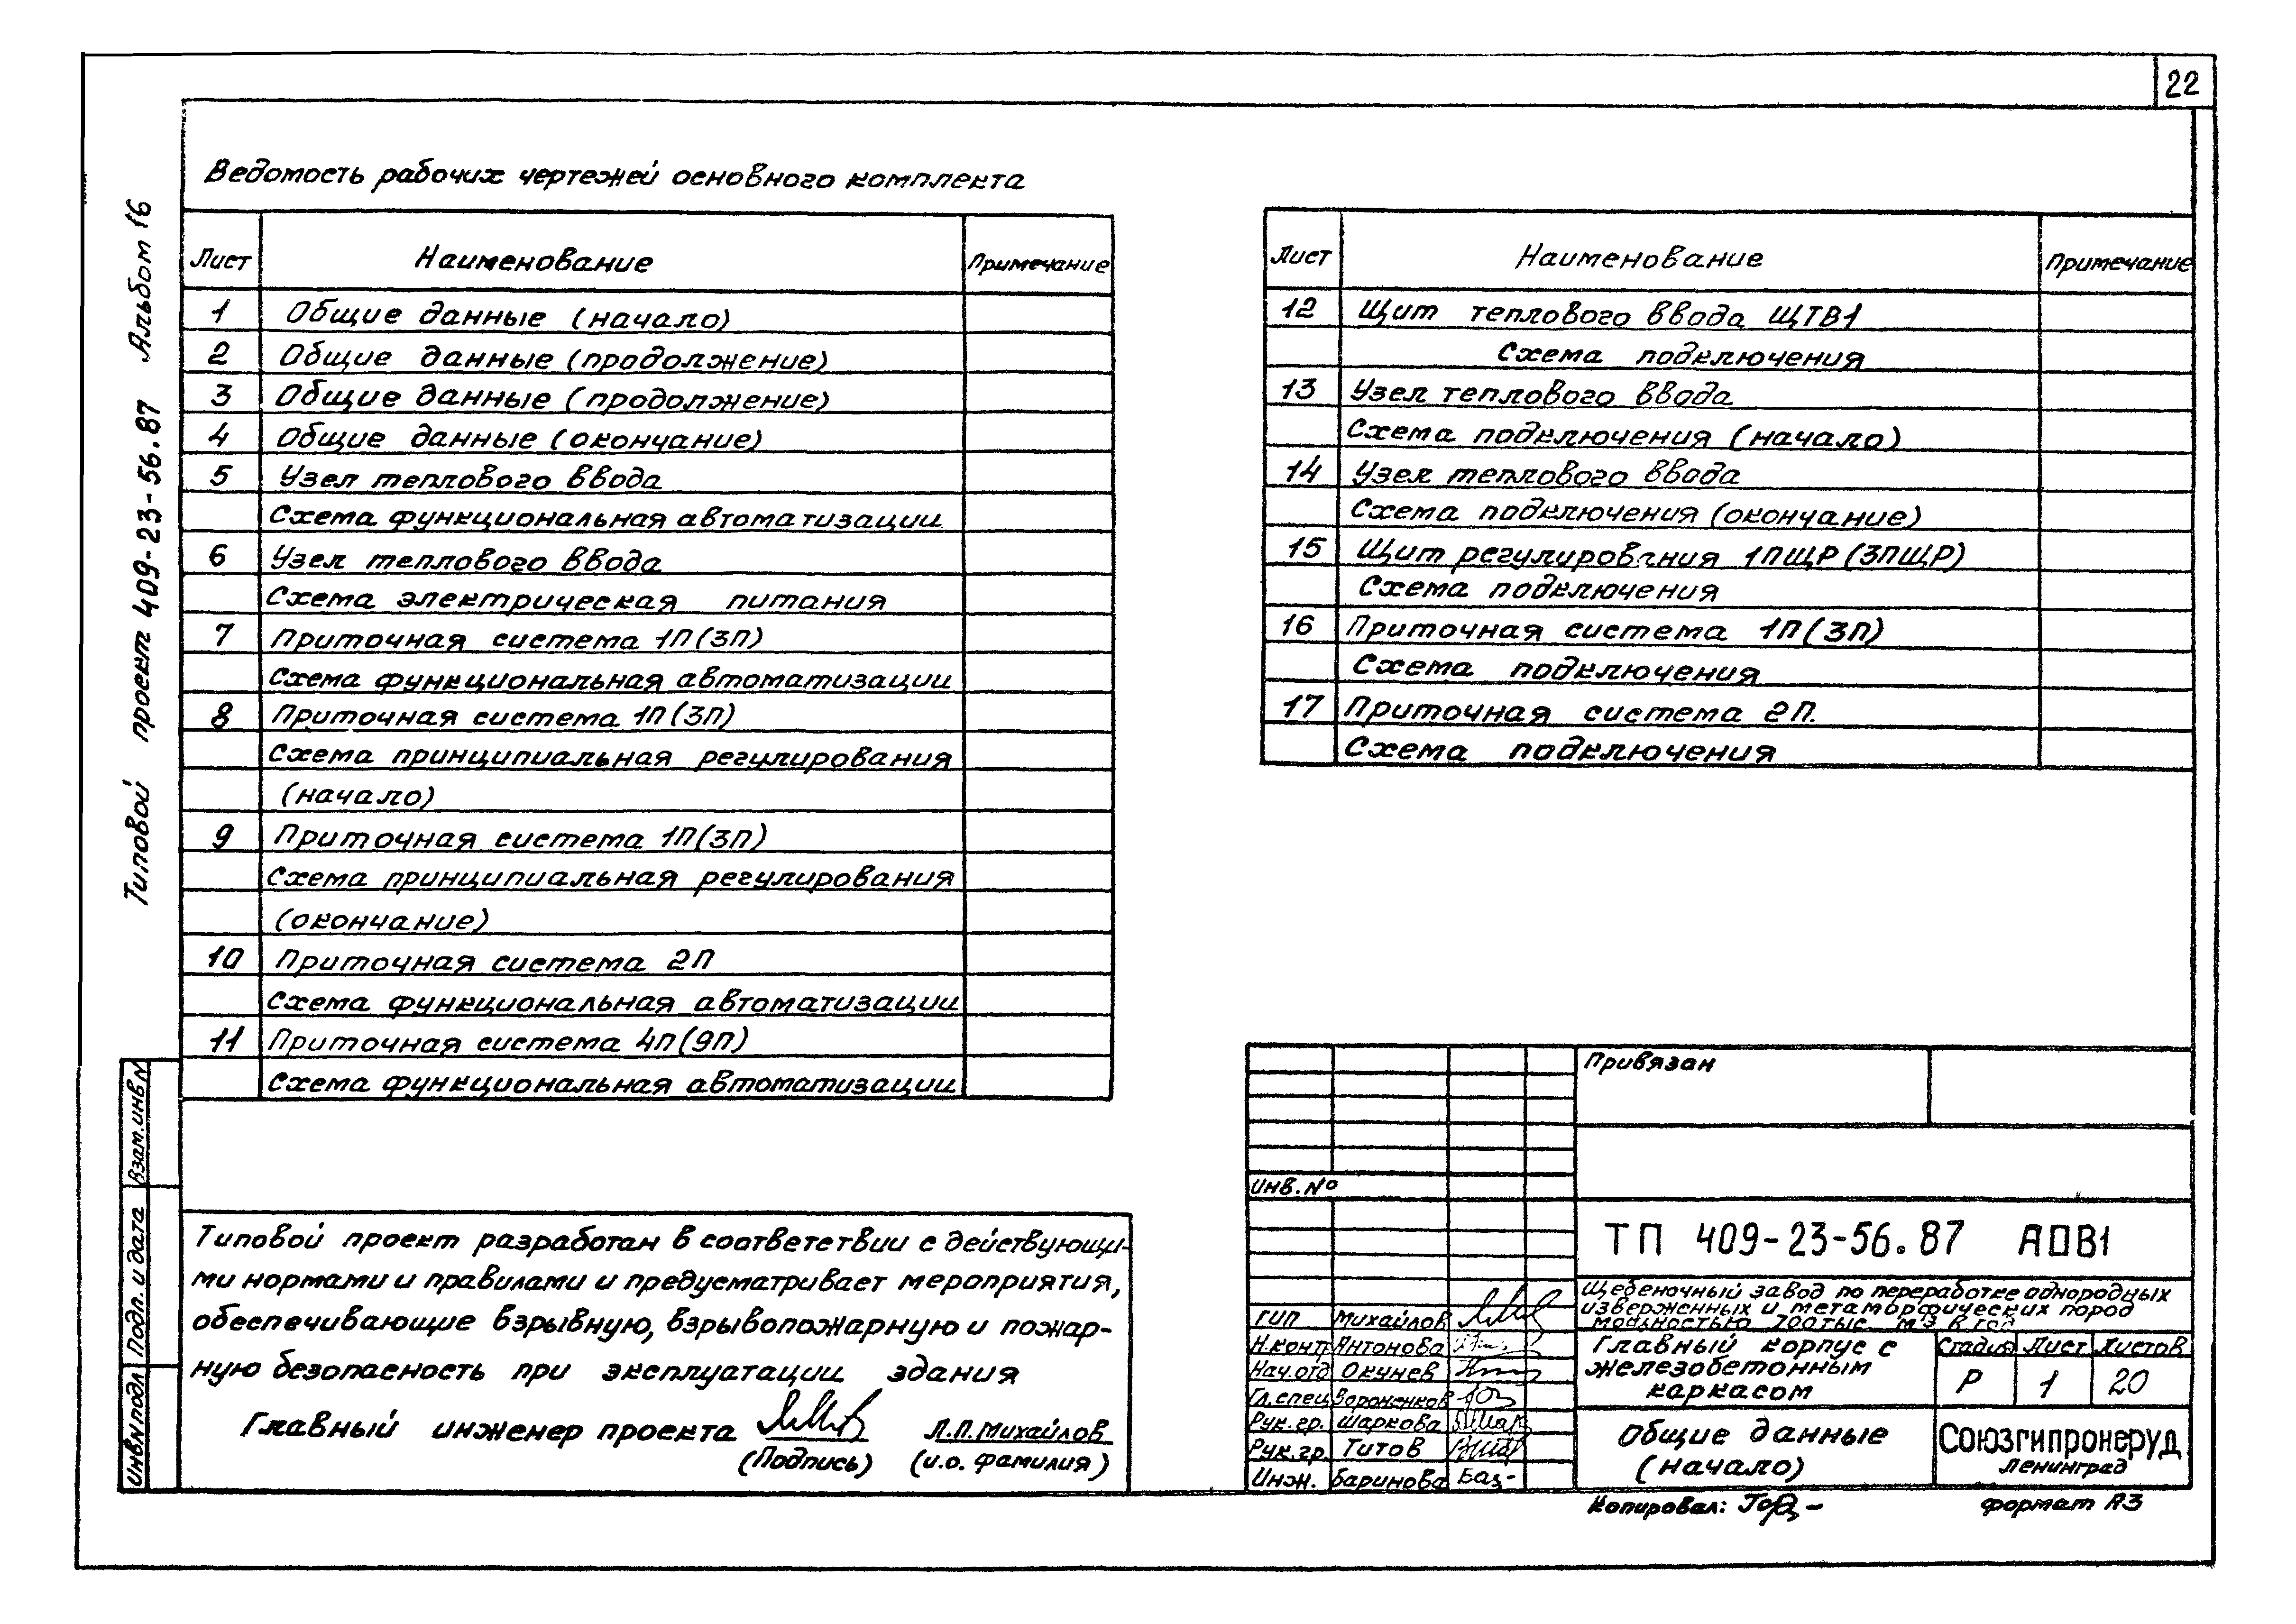 22
Типовой проект 409-23-56.87 Альбом 16
Ведомость рабочих чертежей основного комплекта
Лист Наименование Примечание
1 Общие данные (начало)
2 Общие данные (продолжение)
3 Общие данные (продолжение)
4 Общие данные (окончание)
5 Узел теплового ввода
Схема функциональная автоматизации
6 Узел теплового ввода
Схема электрическая питания
7 Приточная система 1П (3П)
Схема функциональная автоматизации
8 Приточная система 1П (3П)
Схема принципиальная регулирования
(начало)
9 Приточная система 1П (3П)
Схема принципиальная регулирования
(окончание)
10 Приточная система 2П
Схема функциональная автоматизации
11 Приточная система 4П (9П)
Схема функциональная автоматизации
Лист Наименование Примечание
12 Щит теплового ввода ЩТВ1
Схема подключения
13 Узел теплового ввода
Схема подключения (начало)
14 Узел теплового ввода
Схема подключения (окончание)
15 Щит регулирования 1ПЩР (3ПЩР)
Схема подключения
16 Приточная система 1П (3П)
Схема подключения
17 Приточная система 2П.
Схема подключения
Типовой проект разработан в соответствии с действующи-
ми нормами и правилами и предусматривает мероприятия,
обеспечивающие взрывную, взрывопожарную и пожар-
ную безопасность при эксплуатации здания
Главный инженер проекта Л.П. Михайлов
(Подпись) (и.о. фамилия)
Взам.инв№
Подп. и дата
Инв№подл
Привязан
Инв. №
ТП 409-23-56.87 АОВ1
Щебеночный завод по переработке однородных
изверженных и метаморфических пород
мощностью 700 тыс. м3 в год
ГИП Михайлов
Н.контр Антонова
Нач.отд Окунев
Гл.спец Вороненков
Рук.гр. Шаркова
Рук.гр. Титов
Инж. Баринова
Главный корпус с
железобетонным
каркасом
Стадия Лист Листов
Р 1 20
Общие данные
(начало)
Союзгипронеруд
Ленинград
Копировал:
формат А3